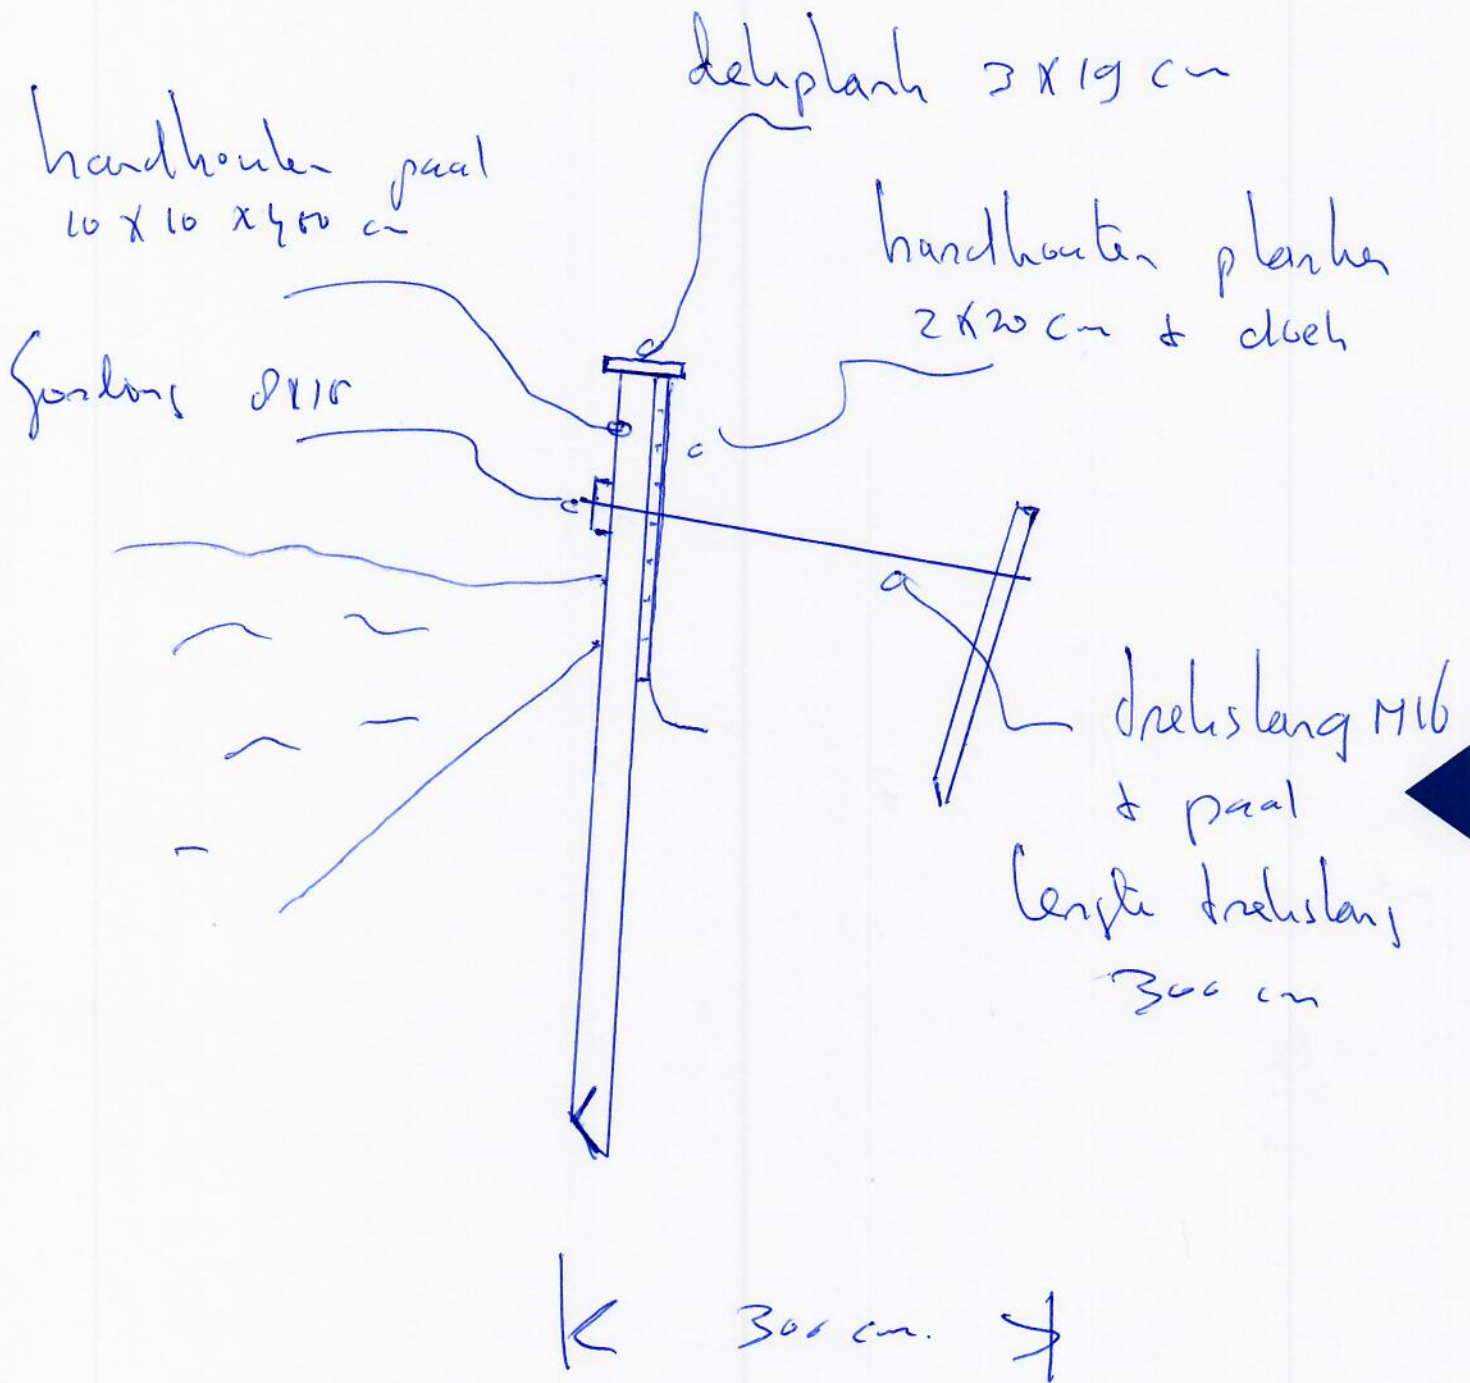 dekplank 3 x 19 cm
hardhouten paal
10 x 10 x 400 cm
hardhouten planken
2 x 20 cm + doek
Gording 8x15
trekstang M16
+ paal
lengte trekstang
300 cm
300 cm.